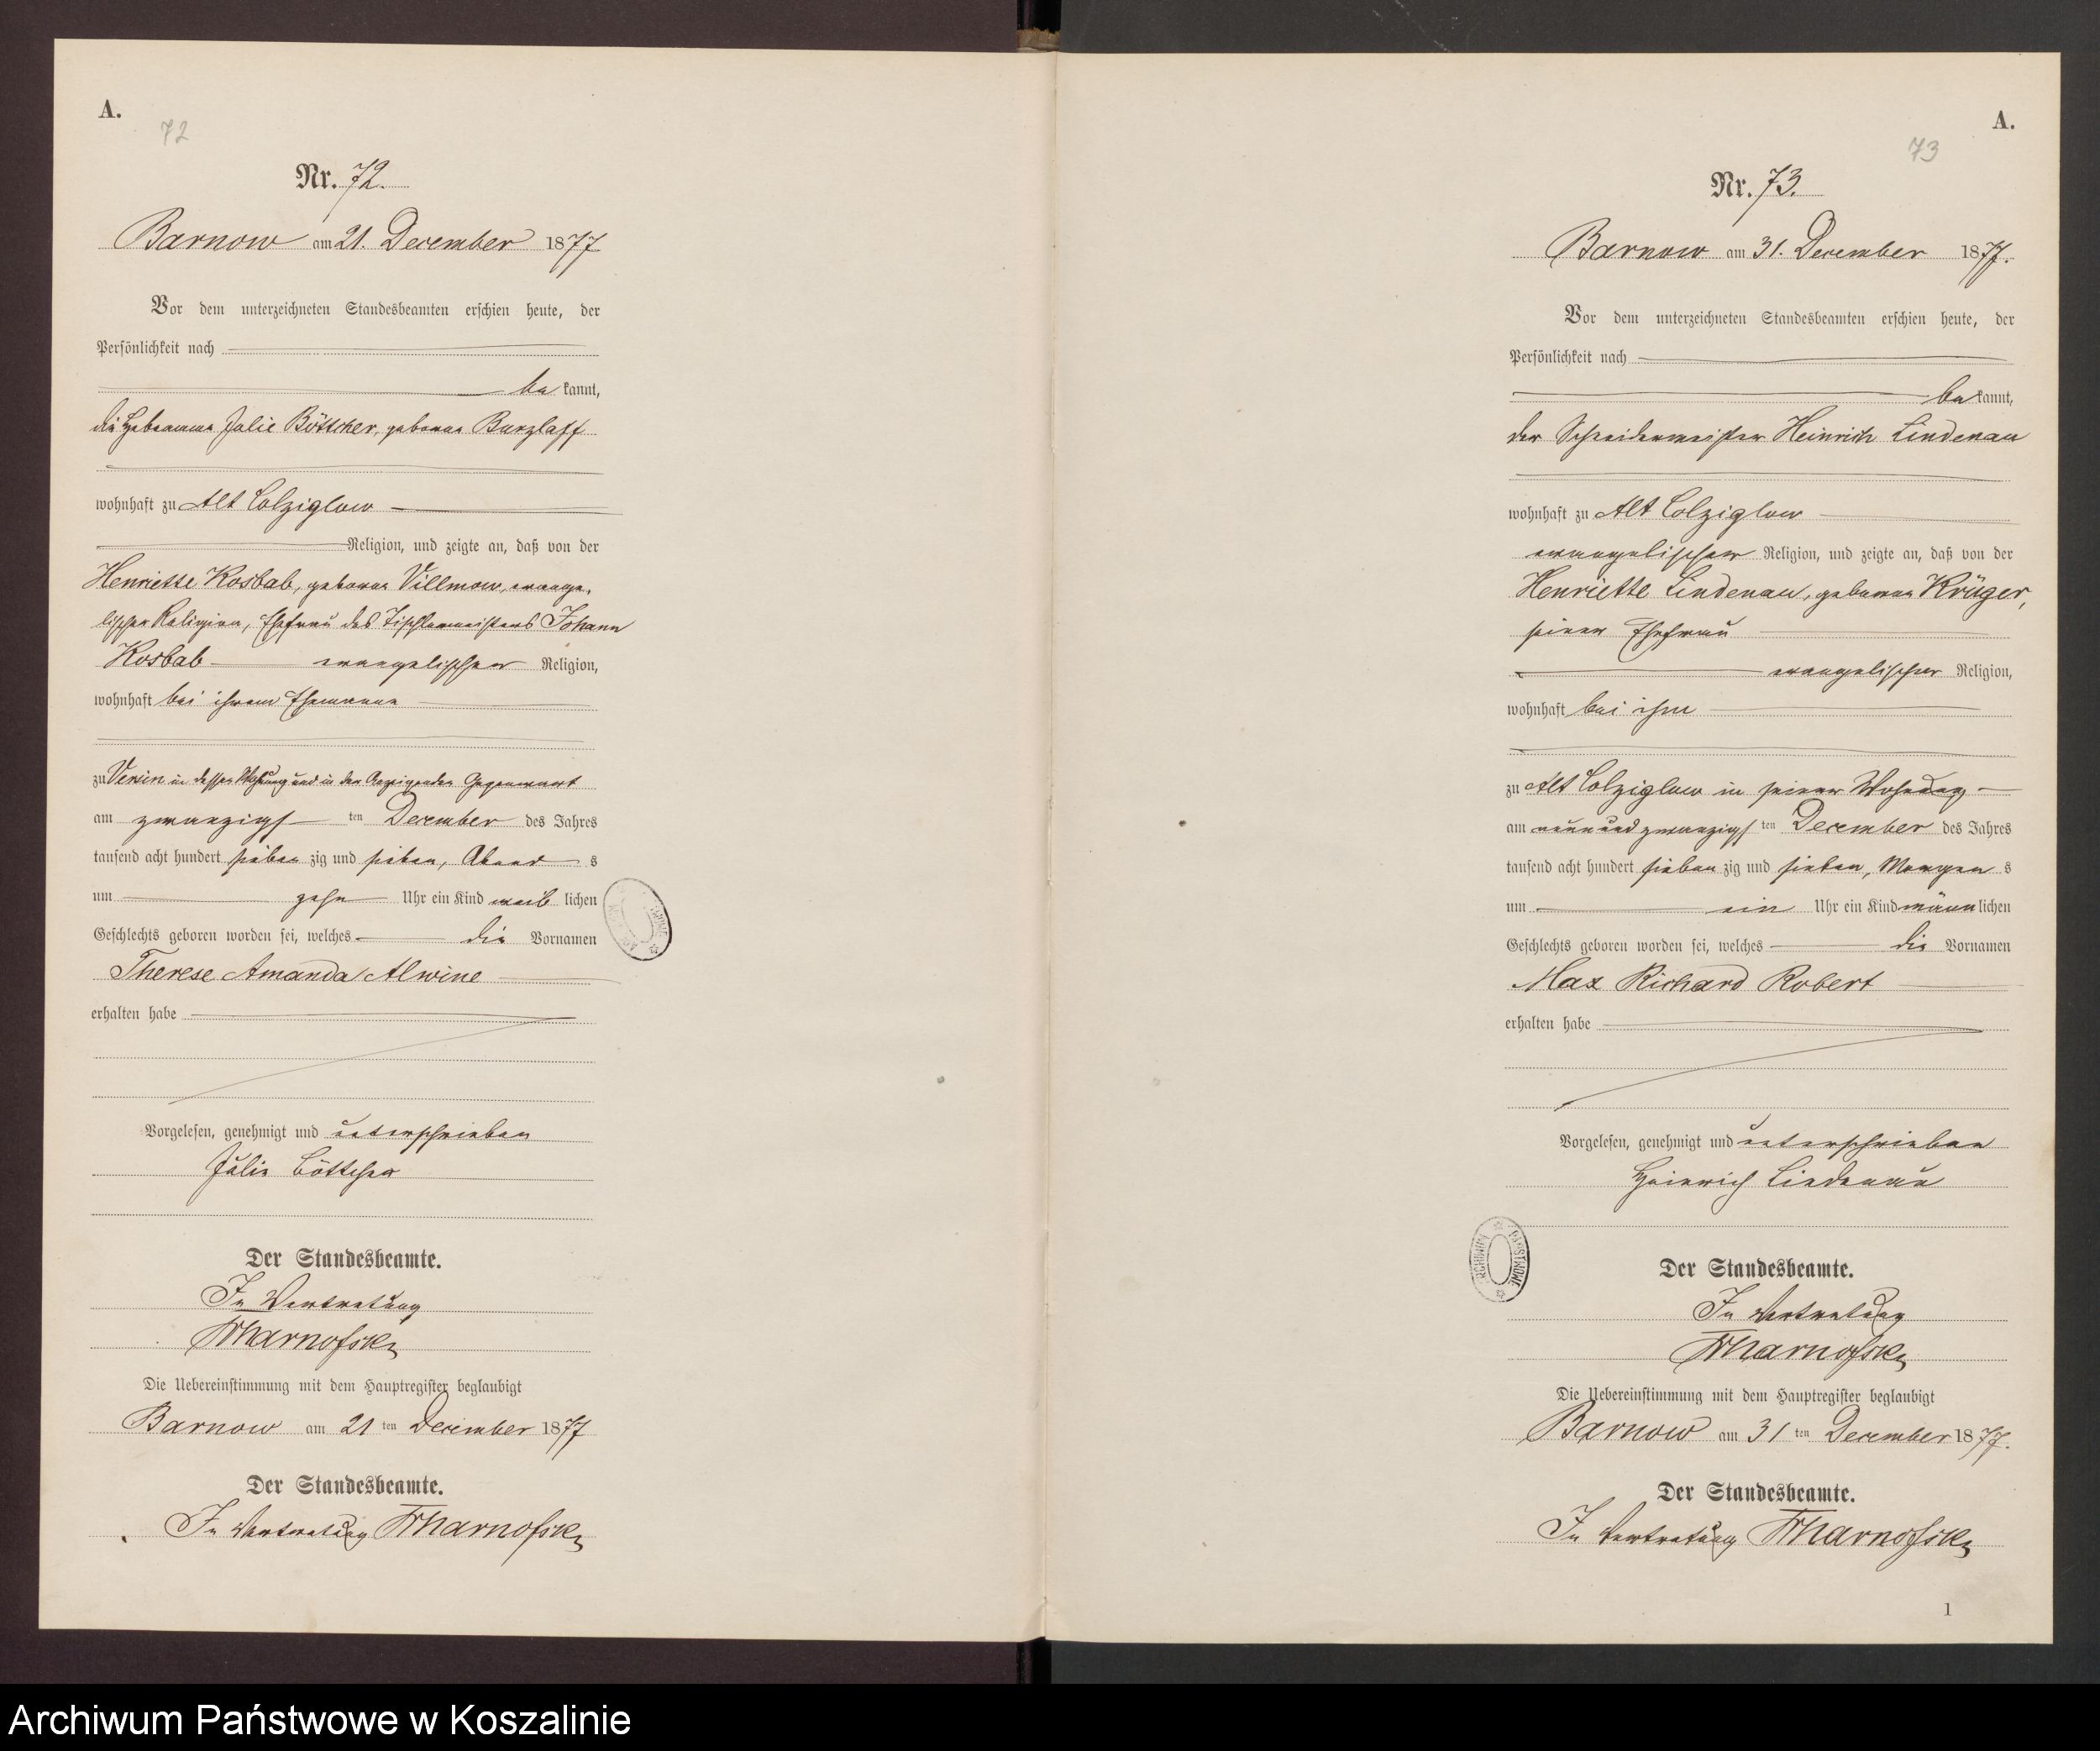 A.
72
Nr. 72.
Barnow am 21. December 1877
Vor dem unterzeichneten Standesbeamten erschien heute, der
Persönlichkeit nach
be kannt,
die Hebamme Julie Böttcher, geborne Burzlaff
wohnhaft zu Alt Colziglow
Religion, und zeigte an, daß von der
Henriette Kosbab, geborne Villmow, evange-
lischer Religion, Ehefrau des Tischlermeisters Johann
Kosbab evangelischer Religion,
wohnhaft bei ihrem Ehemanne
zu Versin in dessen Wohnung und in der Anzeigenden Gegenwart
am zwanzigs ten December des Jahres
tausend acht hundert sieben zig und sieben, Abend s
um zehn Uhr ein Kind weib lichen
Geschlechts geboren worden sei, welches die Vornamen
Therese Amanda Alwine
erhalten habe
Vorgelesen, genehmigt und unterschrieben
Julie Böttcher
Der Standesbeamte.
In Vertretung
Die Uebereinstimmung mit dem Hauptregister beglaubigt
Barnow am 21 ten December 1877
Der Standesbeamte.
In Vertretung
A.
73
Nr. 73.
Barnow am 31. December 1877.
Vor dem unterzeichneten Standesbeamten erschien heute, der
Persönlichkeit nach
be kannt,
der Schneidermeister Heinrich Lindenau
wohnhaft zu Alt Colziglow
evangelischer Religion, und zeigte an, daß von der
Henriette Lindenau, geborne Krüger,
seiner Ehefrau
evangelischer Religion,
wohnhaft bei ihm
zu Alt Colziglow in seiner Wohnung
am neunundzwanzigs ten December des Jahres
tausend acht hundert sieben zig und sieben, Morgen s
um ein Uhr ein Kind männ lichen
Geschlechts geboren worden sei, welches die Vornamen
Max Richard Robert
erhalten habe
Vorgelesen, genehmigt und unterschrieben
Heinrich Lindenau
ARCHIWUM PAŃSTWOWE
Der Standesbeamte.
In Vertretung
Die Uebereinstimmung mit dem Hauptregister beglaubigt
Barnow am 31 ten December 1877.
Der Standesbeamte.
In Vertretung
1
Archiwum Państwowe w Koszalinie